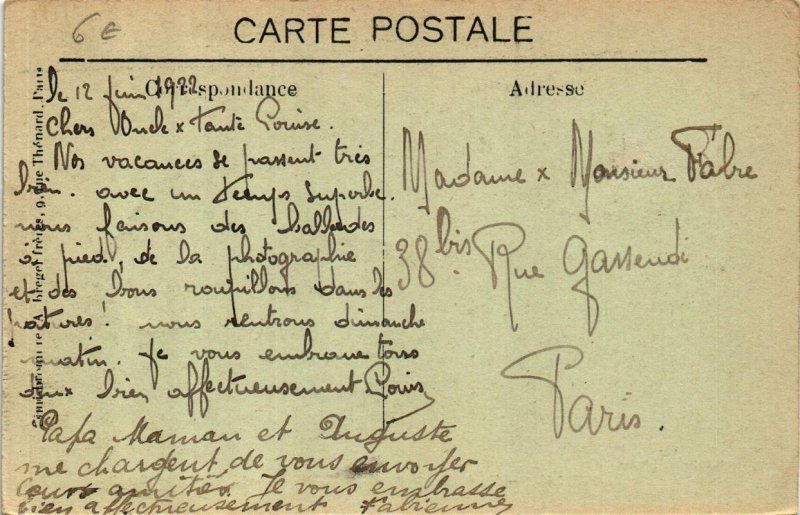 6€
CARTE POSTALE
Correspondance
Adresse
le 12 juin 1922
Chers Oncle x Tante Louise.
Nos vacances se passent très
bien. avec un temps superbe.
nous faisons des ballades
à pied, de la photographie
et des bons roupillons dans les
patures! nous rentrons dimanche
matin. Je vous embrasse tous
deux bien affectueusement Louis
Papa Maman et Auguste
me chargent de vous envoyer
leurs amitiés. Je vous embrasse
bien affectueusement Fabienne
Madame x Monsieur Fabre
38 bis Rue Gassendi
Paris.
breger frères, 9, rue Thénard, Paris